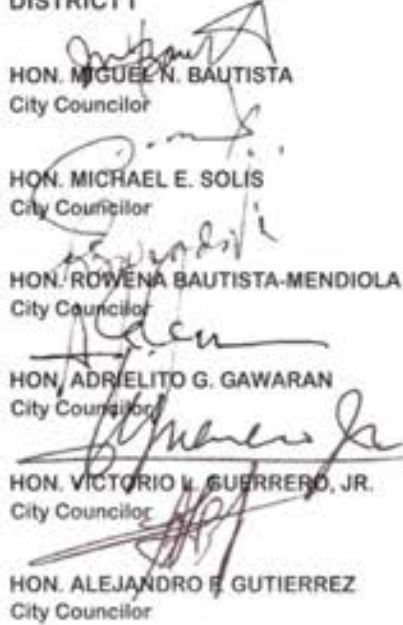 DISTRICT I
HON. MIGUEL N. BAUTISTA
City Councilor
HON. MICHAEL E. SOLIS
City Councilor
HON. ROWENA BAUTISTA-MENDIOLA
City Councilor
HON. ADRIELITO G. GAWARAN
City Councilor
HON. VICTORIO L. GUERRERO, JR.
City Councilor
HON. ALEJANDRO F. GUTIERREZ
City Councilor